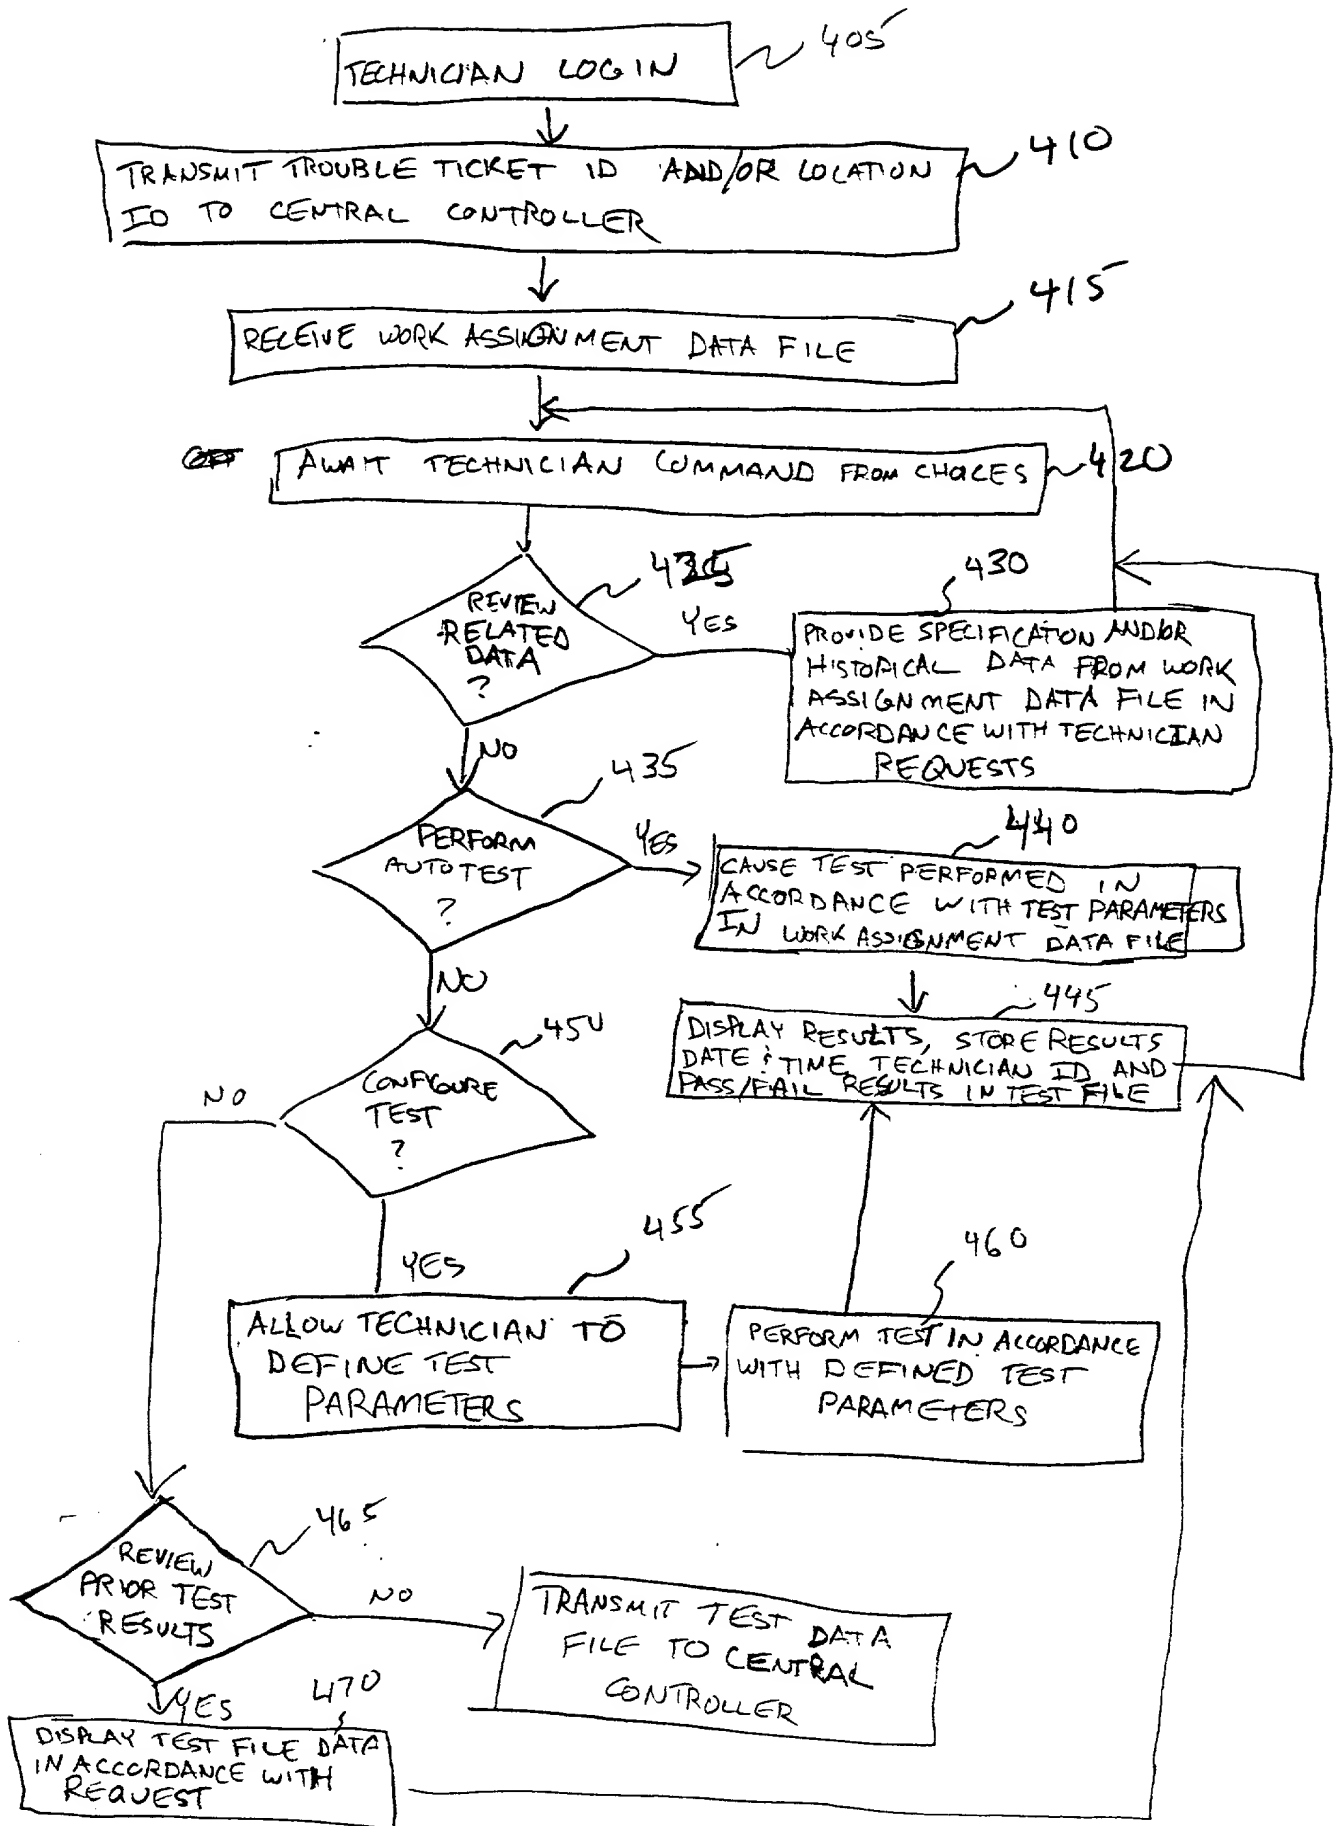 TECHNICIAN LOGIN
405
TRANSMIT TROUBLE TICKET ID AND/OR LOCATION
ID TO CENTRAL CONTROLLER
410
RECEIVE WORK ASSIGNMENT DATA FILE
415
AWAIT TECHNICIAN COMMAND FROM CHOICES
420
REVIEW
RELATED
DATA
?
YES
430
PROVIDE SPECIFICATION AND/OR
HISTORICAL DATA FROM WORK
ASSIGNMENT DATA FILE IN
ACCORDANCE WITH TECHNICIAN
REQUESTS
NO
435
PERFORM
AUTOTEST
?
YES
440
CAUSE TEST PERFORMED IN
ACCORDANCE WITH TEST PARAMETERS
IN WORK ASSIGNMENT DATA FILE
NO
445
DISPLAY RESULTS, STORE RESULTS
DATE & TIME, TECHNICIAN ID AND
PASS/FAIL RESULTS IN TEST FILE
450
CONFIGURE
TEST
?
NO
YES
455
ALLOW TECHNICIAN TO
DEFINE TEST
PARAMETERS
460
PERFORM TEST IN ACCORDANCE
WITH DEFINED TEST
PARAMETERS
465
REVIEW
PRIOR TEST
RESULTS
NO
TRANSMIT TEST DATA
FILE TO CENTRAL
CONTROLLER
YES
470
DISPLAY TEST FILE DATA
IN ACCORDANCE WITH
REQUEST